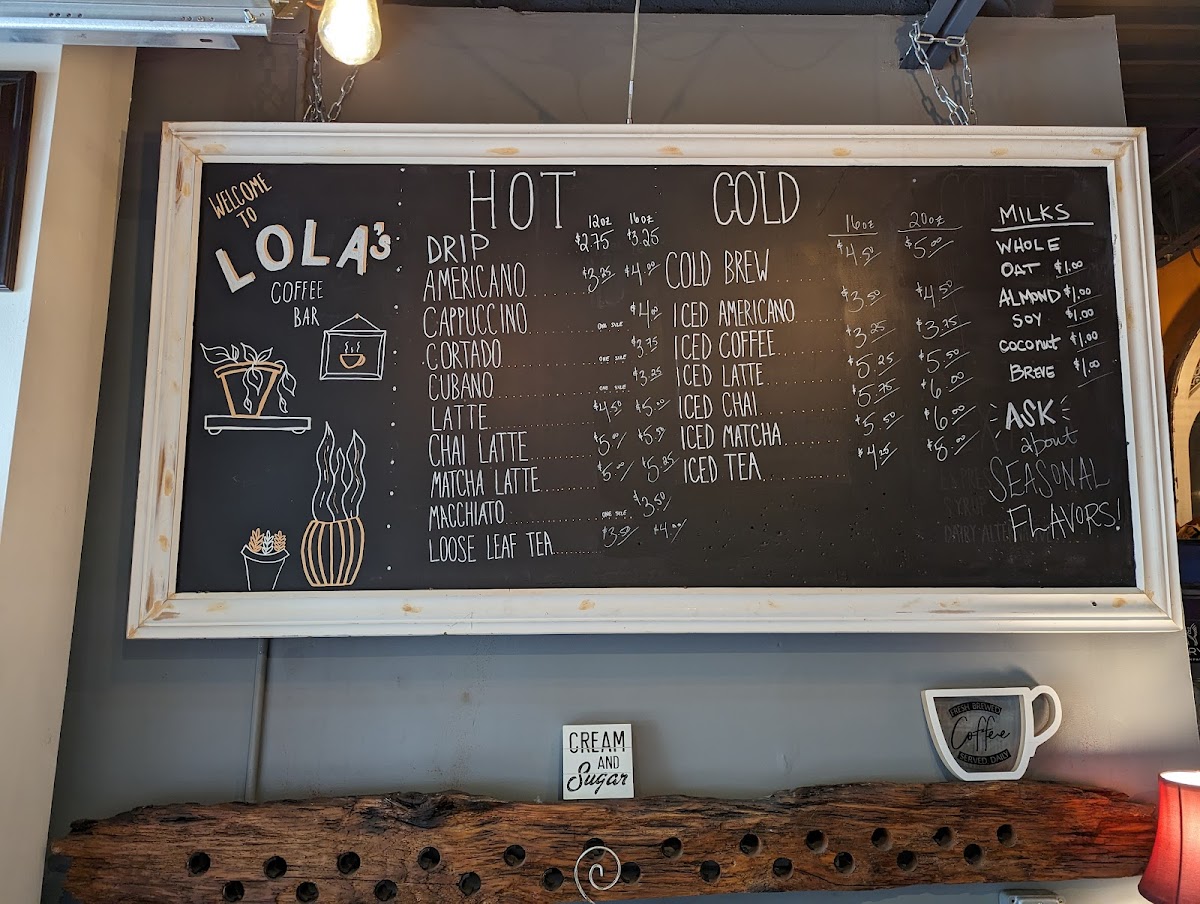 WELCOME
TO
LOLA'S
COFFEE
BAR
HOT
12oz 16oz
DRIP $2.75 $3.25
AMERICANO $3.25 $4.00
CAPPUCCINO $4.00
CORTADO ONE SIZE $3.75
CUBANO ONE SIZE $3.25
LATTE $4.50 $5.00
CHAI LATTE $5.00 $5.50
MATCHA LATTE $5.00 $5.25
MACCHIATO ONE SIZE $3.50
LOOSE LEAF TEA $3.50 $4.00
COLD
16oz 20oz
COLD BREW $4.50 $5.00
ICED AMERICANO $3.50 $4.50
ICED COFFEE $3.25 $3.75
ICED LATTE $5.25 $5.50
ICED CHAI $5.75 $6.00
ICED MATCHA $5.50 $6.00
ICED TEA $4.25 $8.00
MILKS
WHOLE
OAT $1.00
ALMOND $1.00
SOY $1.00
COCONUT $1.00
BREVE $1.00
ASK
about
SEASONAL
FLAVORS!
CREAM
AND
Sugar
FRESH BREWED
Coffee
SERVED DAILY